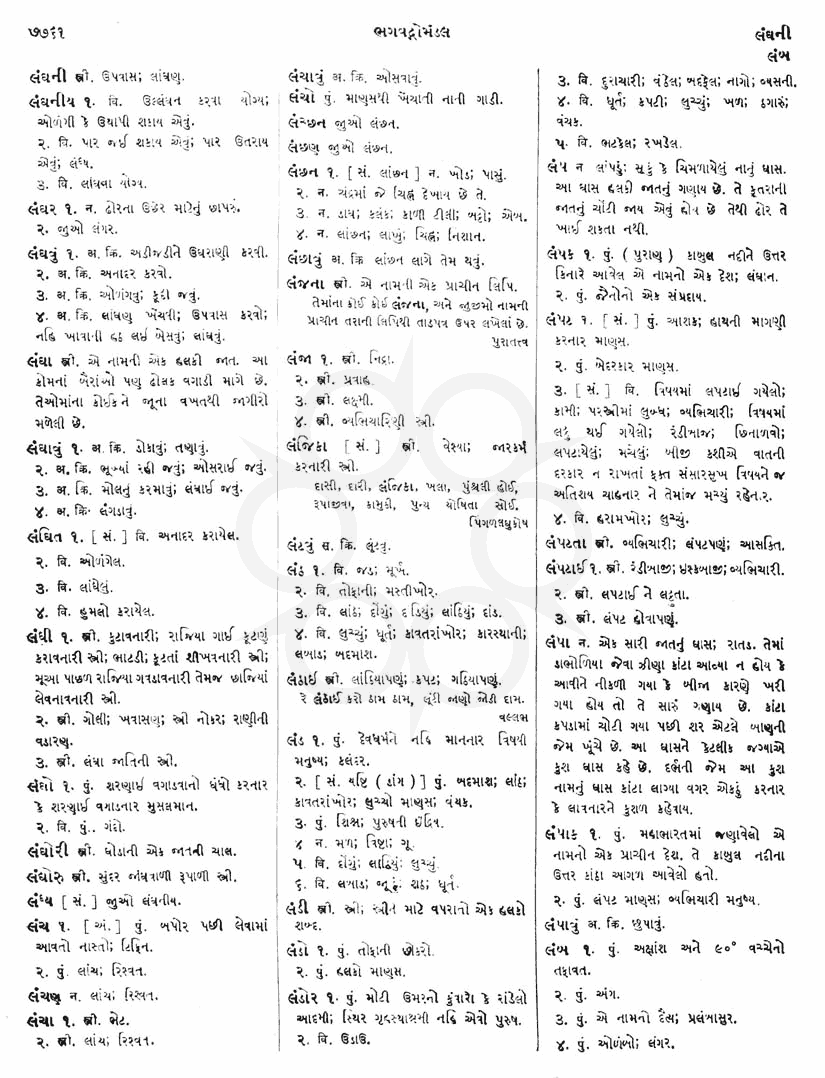 ૭૭૬૧
ભગવદ્ગોમંડલ
લંઘની
લંબ
લંઘની સ્ત્રી. ઉપવાસ; લાંઘણ.
લંઘનીય ૧. વિ. ઉલ્લંઘન કરવા યોગ્ય;
ઓળંગી કે ઉથાપી શકાય એવું.
૨. વિ. પાર જઈ શકાય એવું; પાર ઉતરાય
એવું; લંધ્ય.
૩. વિ. લાંઘવા યોગ્ય.
લંઘર ૧. ન. ઢોરના ઉછેર માટેનું છાપરું.
૨. જુઓ લંગર.
લંઘવું ૧. અ. ક્રિ. અડીજડીને ઉઘરાણી કરવી.
૨. અ. ક્રિ. અનાદર કરવો.
૩. અ. ક્રિ. ઓળંગવું; કૂદી જવું.
૪. અ. ક્રિ. લાંઘણ ખેંચવી; ઉપવાસ કરવો;
નહિ ખાવાની હઠ લઈ બેસવું; લાંઘવું.
લંઘા સ્ત્રી. એ નામની એક હલકી જાત. આ
કોમનાં બૈરાંઓ પણ ઢોલક વગાડી માગે છે.
તેઓમાંના કોઈકને જૂના વખતથી જાગીરો
મળેલી છે.
લંઘાવું ૧. અ. ક્રિ. ડોકાવું; તણાવું.
૨. અ. ક્રિ. ભૂખ્યાં રહી જવું; ઓસરાઈ જવું.
૩. અ. ક્રિ. મોલનું કરમાવું; લંઘાઈ જવું.
૪. અ. ક્રિ. લંગડાવું.
લંઘિત ૧. [ સં. ] વિ. અનાદર કરાયેલ.
૨. વિ. ઓળંગેલ.
૩. વિ. લાંઘેલું.
૪. વિ. હુમલો કરાયેલ.
લંઘી ૧. સ્ત્રી. કુટાવનારી; રાજિયા ગાઈ કૂટણું
કરાવનારી સ્ત્રી; ભાટડી; કૂટતાં શીખવનારી સ્ત્રી;
મૂઆ પાછળ રાજિયા ગવડાવનારી તેમજ છાજિયાં
લેવનાવનારી સ્ત્રી.
૨. સ્ત્રી. ગોલી; ખવાસણ; સ્ત્રી નોકર; રાણીની
વડારણ.
૩. સ્ત્રી. લંઘા જાતિની સ્ત્રી.
લંઘો ૧. પું. શરણાઈ વગાડવાનો ધંધો કરનાર
કે શરણાઈ વગાડનાર મુસલમાન.
૨. વિ. પું. ગંદો.
લંઘોરી સ્ત્રી. ઘોડાની એક જાતની ચાલ.
લંઘોરુ સ્ત્રી. સુંદર જાંઘવાળી રૂપાળી સ્ત્રી.
લંઘ્ય [ સં. ] જુઓ લંઘનીય.
લંચ ૧. [ અં. ] પું. બપોર પછી લેવામાં
આવતો નાસ્તો; ટિફિન.
૨. પું. લાંચ; રિશ્વત.
લંચણ ન. લાંચ; રિશ્વત.
લંચા ૧. સ્ત્રી. ભેટ.
૨. સ્ત્રી. લાંચ; રિશ્વત.
લંચાવું અ. ક્રિ. ઓસવાવું.
લંચો પું. માણસથી ખેંચાતી નાની ગાડી.
લંચ્છન જુઓ લંછન.
લંછણ જુઓ લંછન.
લંછન ૧. [ સં. લાંછન ] ન. ખોડ; પાસું.
૨. ન. ચંદ્રમાં જે ચિહ્ન દેખાય છે તે.
૩. ન. ડાઘ; કલંક; કાળી ટીલી; બટ્ટો; એબ.
૪. ન. લાંછન; લાખું; ચિહ્ન; નિશાન.
લંછાવું અ. ક્રિ લાંછન લાગે તેમ થવું.
લંજના સ્ત્રી. એ નામની એક પ્રાચીન લિપિ.
તેમાંના કોઈ કોઈ લંજના, અને જીમો નામની
પ્રાચીન તરાની લિપિથી તાડપત્ર ઉપર લખેલાં છે.
પુરાતત્ત્વ
લંજા ૧. સ્ત્રી. નિદ્રા.
૨. સ્ત્રી. પ્રવાહ.
૩. સ્ત્રી. લક્ષ્મી.
૪. સ્ત્રી. વ્યભિચારિણી સ્ત્રી.
લંજિકા [ સં. ] સ્ત્રી. વેશ્યા; જારકર્મ
કરનારી સ્ત્રી.
દાસી, દારી, લંજિકા, ખલા, પુંશ્ચલી હોઈ,
રૂપાજીવા, કામુકી, પુન્ય યોષિતા સોઈ.
પિંગળલઘુકોષ
લંટવું સ. ક્રિ. લૂંટવું.
લંઠ ૧. વિ. જડ; મૂર્ખ.
૨. વિ. તોફાની; મસ્તીખોર.
૩. વિ. લાંઠ; દોંગું; દડિયું; લાંઠિયું; દાંડ.
૪. વિ. લુચ્ચું; ધૂર્ત; કાવતરાંખોર; કારસ્થાની;
લબાડ; બદમાશ.
લંઠાઈ સ્ત્રી. લાંઠિયાપણું; કપટ; ગઠિયાપણું.
રે લંઠાઈ કરો ઠામ ઠામ, લૂંટી જાણો જોઠી દામ.
વલ્લભ
લંડ ૧. પું. દેવધર્મને નહિ માનનાર વિષયી
મનુષ્ય; કલંદર.
૨. [ સં. યષ્ટિ ( ડાંગ ) ] પું. બદમાશ; લાંઠ;
કાવતરાંખોર; લુચ્ચો માણસ; વંચક.
૩. પું. શિશ્ન; પુરુષની ઇંદ્રિય.
૪ ન. મળ; વિષ્ટા; ગૂ.
૫. વિ. દોંગું; લાઠિયું; લુચ્ચું.
૬. વિ. લબાડ; જૂઠું; શઠ; ધૂર્ત.
લંડી સ્ત્રી. સ્ત્રી; સ્ત્રીને માટે વપરાતો એક હલકો
શબ્દ.
લંડો ૧. પું. તોફાની છોકરો.
૨. પું. હલકો માણસ.
લંડોર ૧. પું. મોટી ઉમરનો કુંવારો કે રાંડેલો
આદમી; સ્થિર ગૃહસ્થાશ્રમી નહિ એવો પુરુષ.
૨. વિ. ઉડાઉ.
૩. વિ. દુરાચારી; વંઠેલ; બદફેલ; નાગો; વ્યસની.
૪. વિ. ધૂર્ત; કપટી; લુચ્ચું; ખળ; ઠગારું;
વંચક.
૫. વિ. ભટકેલ; રખડેલ.
લંપ ન લાંપડું; સૂકું કે ચિમળાયેલું નાનું ઘાસ.
આ ઘાસ હલકી જાતનું ગણાય છે. તે કૂતરાની
જાતનું ચોંટી જાય એવું હોય છે તેથી ઢોર તે
ખાઈ શકતા નથી.
લંપક ૧. પું. ( પુરાણ ) કાબુલ નદીને ઉત્તર
કિનારે આવેલ એ નામનો એક દેશ; લંઘાન.
૨. પું. જૈનોનો એક સંપ્રદાય.
લંપટ ૧. [ સં. ] પું. આશક; હાથની માગણી
કરનાર માણસ.
૨. પું. બેદરકાર માણસ.
૩. [ સં. ] વિ. વિષયમાં લપટાઈ ગયેલો;
કામી; પરસ્ત્રીમાં લુબ્ધ; વ્યભિચારી; વિષયમાં
લટ્ટુ થઈ ગયેલો; રંડીબાજ; છિનાળવો;
લપટાયેલું; મચેલું; બીજી કશીએ વાતની
દરકાર ન રાખતાં ફક્ત સંસારસુખ વિષયને જ
અતિશય ચાહનાર ને તેમાંજ મચ્યું રહેનાર.
૪. વિ. હરામખોર; લુચ્ચું.
લંપટતા સ્ત્રી. વ્યભિચારી; લંપટપણું; આસક્તિ.
લંપટાઈ ૧. સ્ત્રી. રંડીબાજી; ઇશ્કબાજી; વ્યભિચારી.
૨. સ્ત્રી. લપટાઈ ને લટ્ટુતા.
૩. સ્ત્રી. લંપટ હોવાપણું.
લંપા ન. એક સારી જાતનું ઘાસ; રાતડ. તેમાં
ડાભોળિયા જેવા ઝીણા કાંટા આવ્યા ન હોય કે
આવીને નીકળી ગયા કે બીજા કારણે ખરી
ગયા હોય તો તે સારું ગણાય છે. કાંટા
કપડામાં ચોટી ગયા પછી શર એટલે બાણની
જેમ ખૂંચે છે. આ ઘાસને કેટલીક જગ્યાએ
કુશ ઘાસ કહે છે. દર્ભની જેમ આ કુશ
નામનું ઘાસ કાંટા લાગ્યા વગર એકઠું કરનાર
કે લાવનારને કુશળ કહેવાય.
લંપાક ૧. પું. મહાભારતમાં જણાવેલો એ
નામનો એક પ્રાચીન દેશ. તે કાબુલ નદીના
ઉત્તર કાંઠા આગળ આવેલો હતો.
૨. પું. લંપટ માણસ; વ્યભિચારી મનુષ્ય.
લંપાવું અ. ક્રિ. છુપાવું.
લંબ ૧. પું. અક્ષાંશ અને ૯૦° વચ્ચેનો
તફાવત.
૨. પું. અંગ.
૩. પું. એ નામનો દૈત્ય; પ્રલંબાસુર.
૪. પું. ઓળંબો; લંગર.